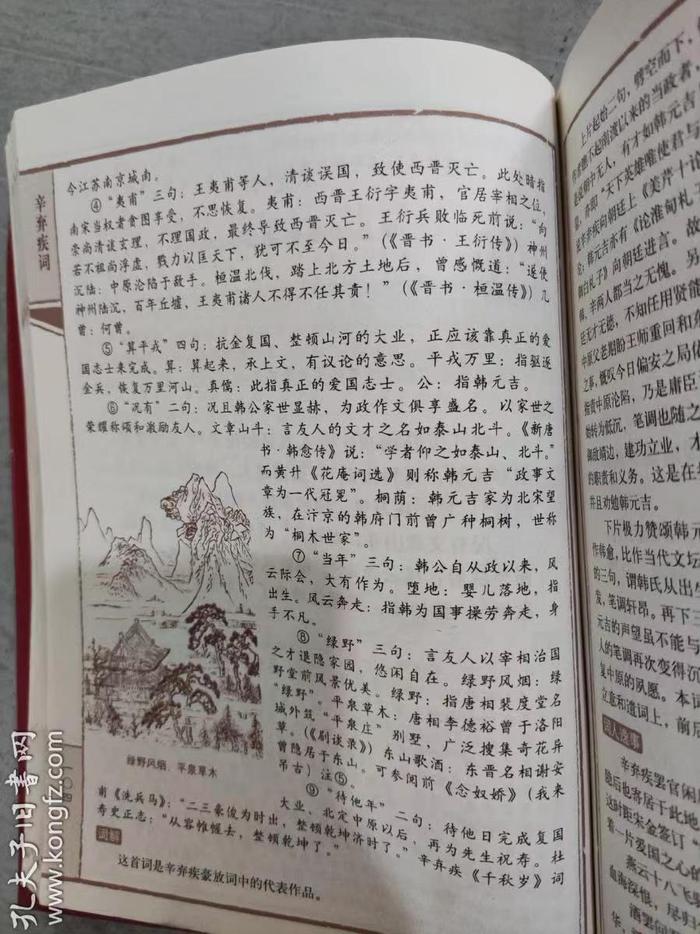 辛弃疾词
今江苏南京城南。
④“夷甫”三句：王夷甫等人，清谈误国，致使西晋灭亡。此处暗指
南宋当权者贪图享受，不思恢复。夷甫：西晋王衍字夷甫，官居宰相之位，
崇尚清谈玄理，不理国政，最终导致西晋灭亡。王衍兵败临死前说：“向
若不祖尚浮虚，戮力以匡天下，犹可不至今日。”（《晋书·王衍传》）神州
沉陆：中原沦陷于敌手。桓温北伐，踏上北方土地后，曾感慨道：“遂使
神州陆沉，百年丘墟，王夷甫诸人不得不任其责！”（《晋书·桓温传》）几
曾：何曾。
⑤“算平戎”四句：抗金复国、整顿山河的大业，正应该靠真正的爱
国志士来完成。算：算起来，承上文，有议论的意思。平戎万里：指驱逐
金兵，恢复万里河山。真儒：此指真正的爱国志士。公：指韩元吉。
⑥“况有”二句：况且韩公家世显赫，为政作文俱享盛名。以家世之
荣耀称颂和激励友人。文章山斗：言友人的文才之名如泰山北斗。《新唐
书·韩愈传》说：“学者仰之如泰山、北斗。”
而黄升《花庵词选》则称韩元吉“政事文
章为一代冠冕”。桐荫：韩元吉家为北宋望
族，在汴京的韩府门前曾广种桐树，世称
为“桐木世家”。
⑦“当年”三句：韩公自从政以来，风
云际会，大有作为。堕地：婴儿落地，指
出生。风云奔走：指韩为国事操劳奔走，身
手不凡。
⑧“绿野”三句：言友人以宰相治国
之才退隐家园，悠闲自在。绿野风烟：绿
野堂前风景优美。绿野：指唐相裴度堂名
“绿野”。平泉草木：唐相李德裕曾于洛阳
城外筑“平泉庄”别墅，广泛搜集奇花异
草。（《剧谈录》）东山歌酒：东晋名相谢安
曾隐居于东山。可参阅前《念奴娇》（我来
吊古）注⑤。
⑨“待他年”二句：待他日完成复国
大业、北定中原以后，再为先生祝寿。杜
甫《洗兵马》：“二三豪俊为时出，整顿乾坤济时了。”辛弃疾《千秋岁》词
寿史正志：“从容帷幄去，整顿乾坤了。”
绿野风烟，平泉草木
词解
这首词是辛弃疾豪放词中的代表作品。
上片起始二句，劈空而下，
南渡以来的当政者，
中无人，有才如韩元吉
“天下英雄唯使君与
疾向朝廷上《美芹十论
韩元吉亦有《论淮甸札
向朝廷进言。故
辛两人都当之无愧。另
无才无德，不知任用贤能
中原父老期盼王师重回和
之事，慨叹今日偏安之局
指责中原沦陷，乃是庸臣
转为低沉，笔调也随之
靖边，建功立业，才
的职责和义务。这是在
并且劝勉韩元吉。
下片极力赞颂韩元
作韩愈，比作当代文坛
的三句，谓韩氏从出生
发，笔调轩昂。再下三
元吉的声望虽不能与
人的笔调再次变得沉
复中原的夙愿。本词
立意和遣词上，前后
词人故事
辛弃疾罢官闲居
隐后也寄居于此地
这时距宋金签订“
着一片爱国之心的
燕云十八飞骑
血海深恨，尽归
酒罢问
孔夫子旧书网
www.kongfz.com